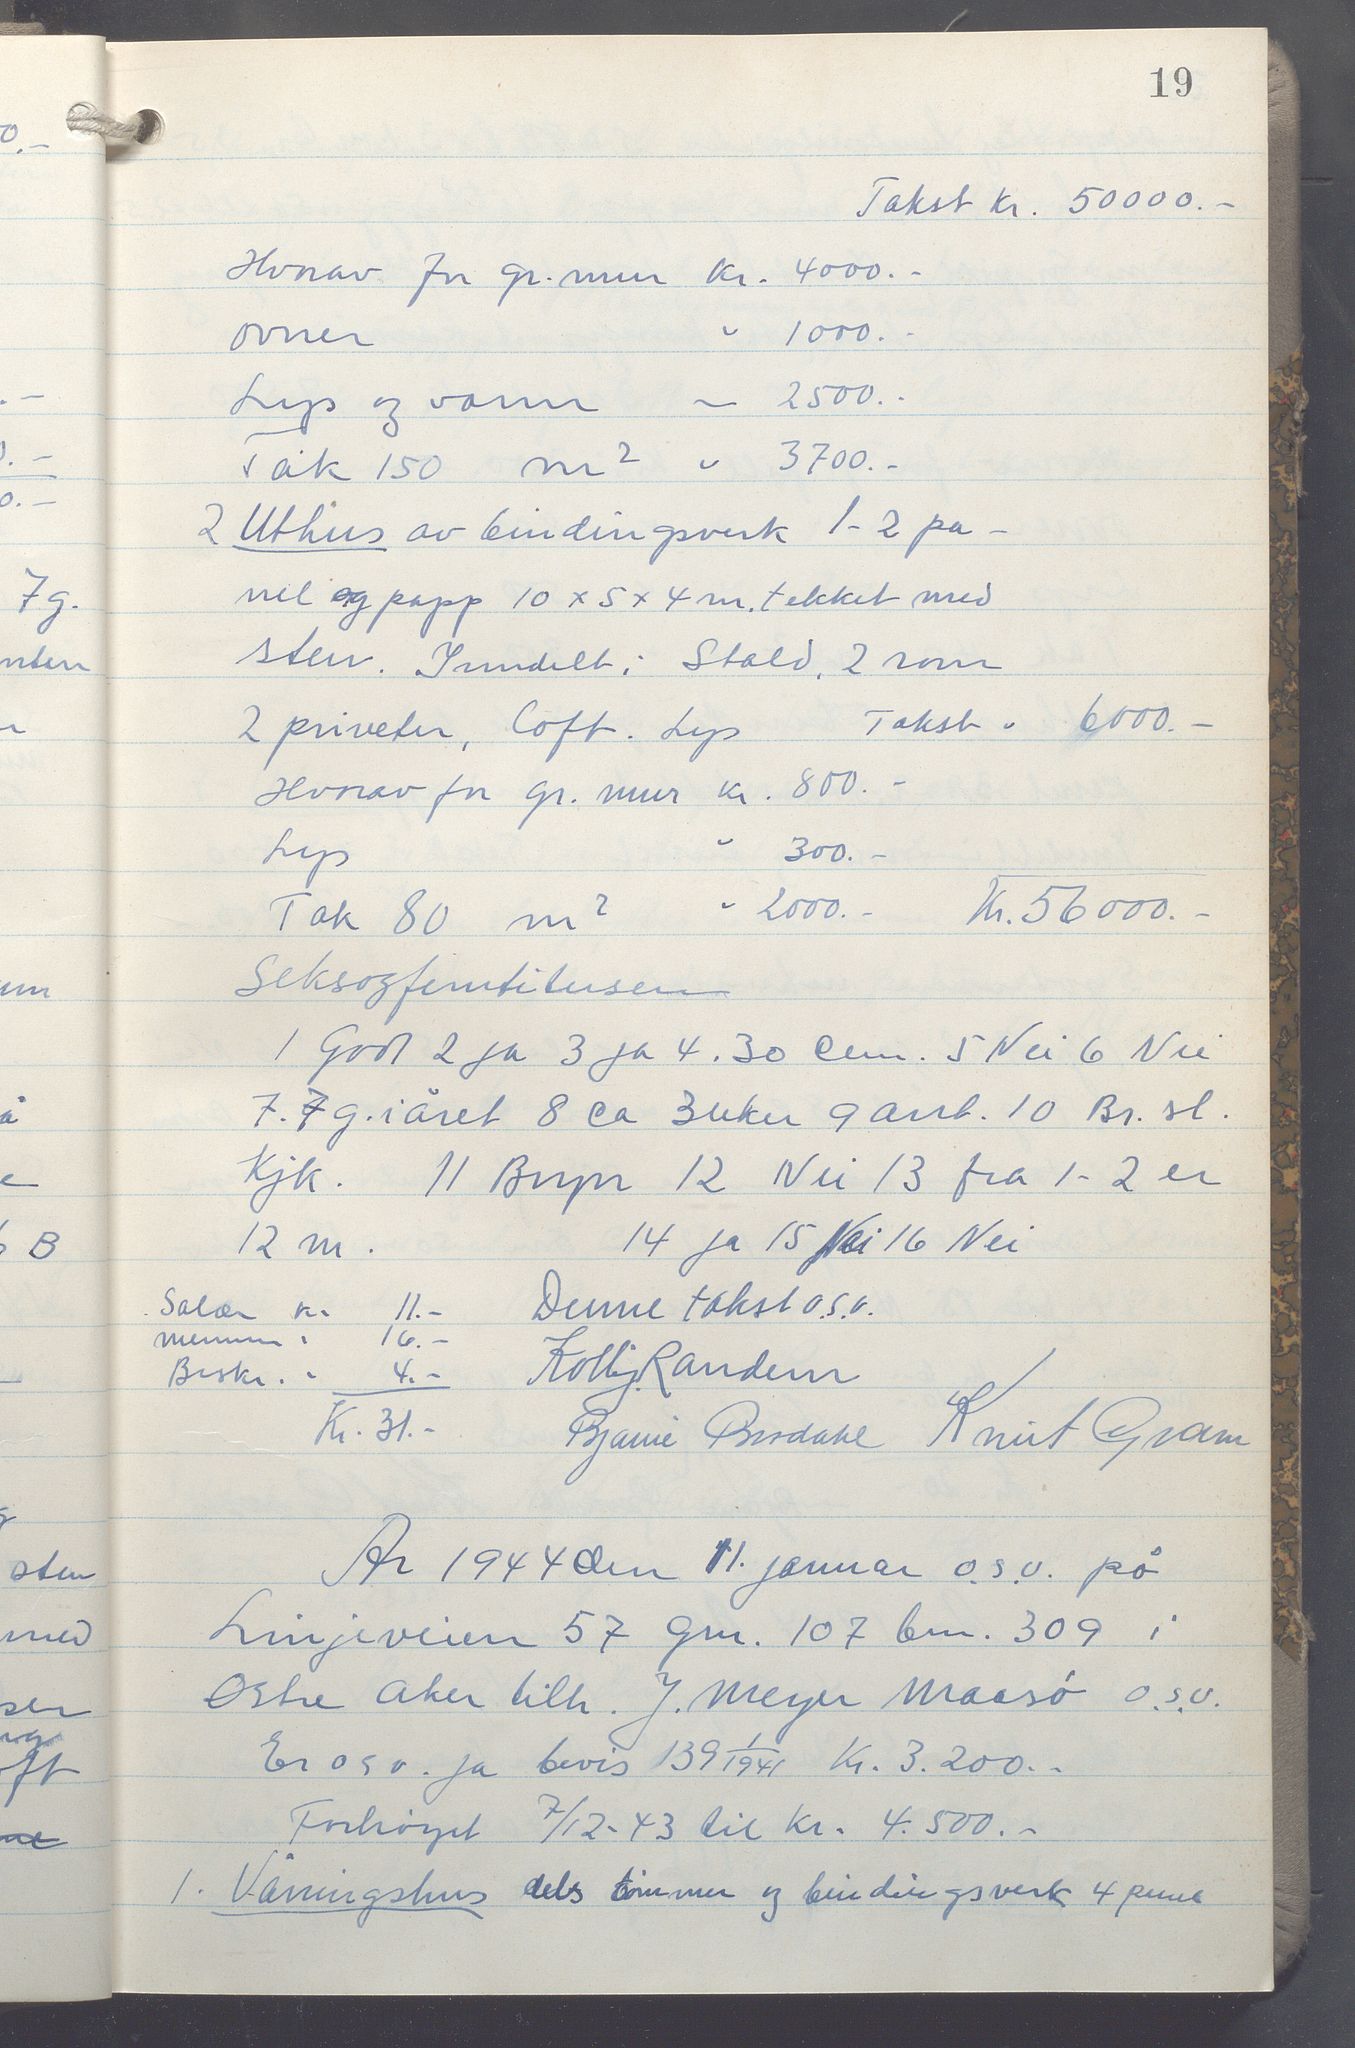 19
Takst kr. 50000.-
Hvorav for gr. mur kr. 4000.-
ovner " 1000.-
Lys og vann " 2500.-
Tak 150 m² " 3700.-
2 Uthus av bindingsverk 1-2 pa-
nel og papp 10 x 5 x 4 m. tekket med
sten. Inndelt: Stald, 2 rom
2 priveter, loft. Lys Takst " 6000.-
Hvorav for gr. mur kr. 800.-
Lys " 300.-
Tak 80 m² " 2000.- Kr. 56000.-
Seksogfemtitusen
1 God 2 ja 3 ja 4. 30 cem. 5 Nei 6 Nei
7. 7 g. i året 8 ca 3 uker 9 anst. 10 Br. sl.
Kjk. 11 Bryn 12 Nei 13 fra 1-2 er
12 m. 14 ja 15 Nei 16 Nei
Salær kr. 11.- Denne takst o.s.v.
16.-
Beskr. " 4.- Randem
Kr. 31.- Bjarne Knut Gram
År 1944 den 11. januar o.s.v. på
Linjeveien 57 gnr. 107 bnr. 309 i
Østre Aker tilh. J. Meyer Maasø o.s.v.
Er o s v. ja bevis 139 1/1941 Kr. 3.200.-
Forhøyet 7/12-43 til kr. 4.500.-
1. Våningshus dels tømmer og bindingsverk 4 panel
0.-
.-
0.-
0.-
7 g.
å
B
g
sten
med
oft